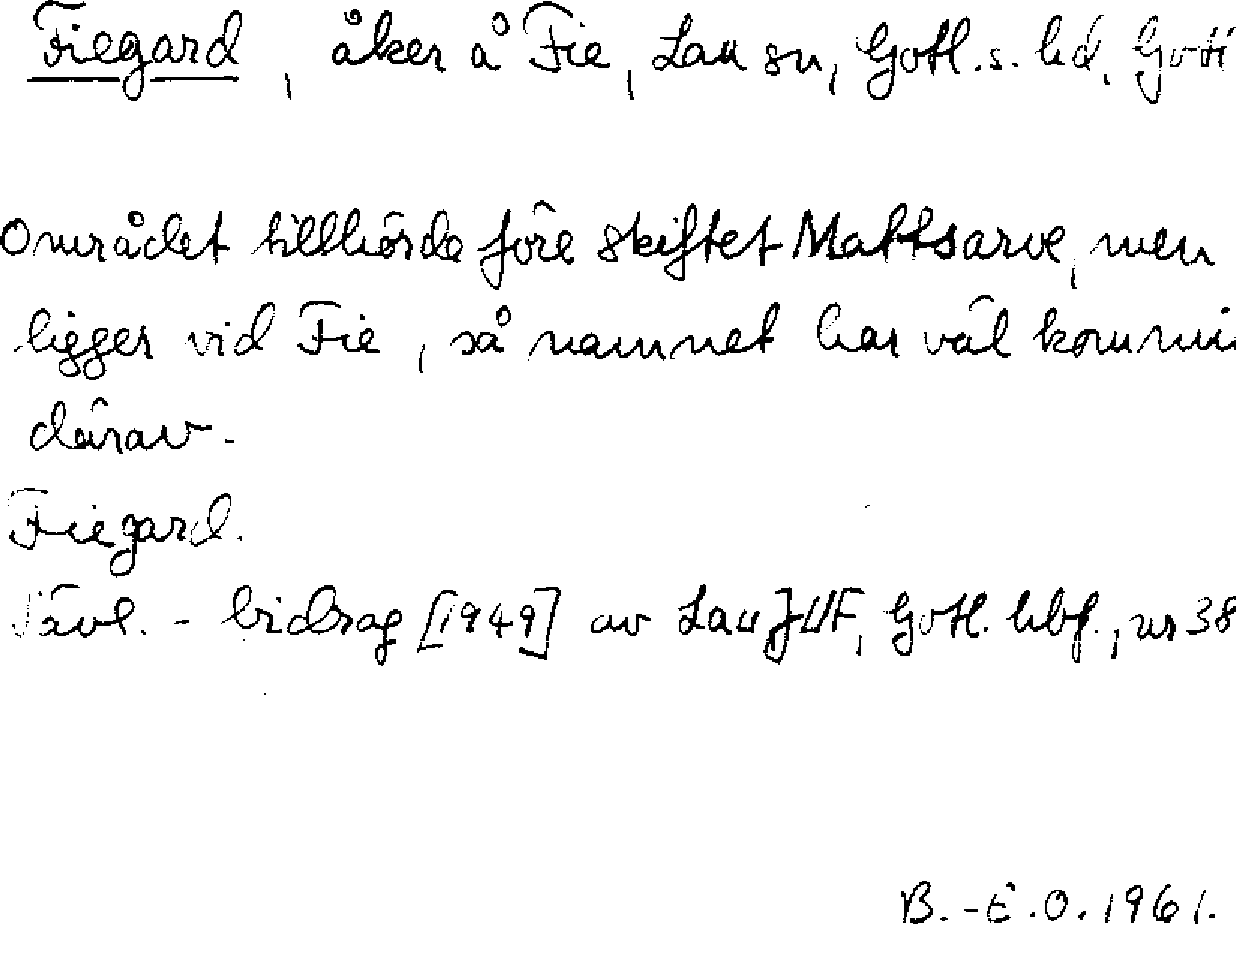 Fiegard, åker å Fie, Lau sn, Gotl. s. hd, Gotl
Området tillhörde före skiftet Mattsarve, men
ligger vid Fie, så namnet har väl kommi
därav.
Fiegard.
Tävl. - bidrag [1949] av Lau JUF, Gotl. hbf., nr 38
B.-E.O. 1961.